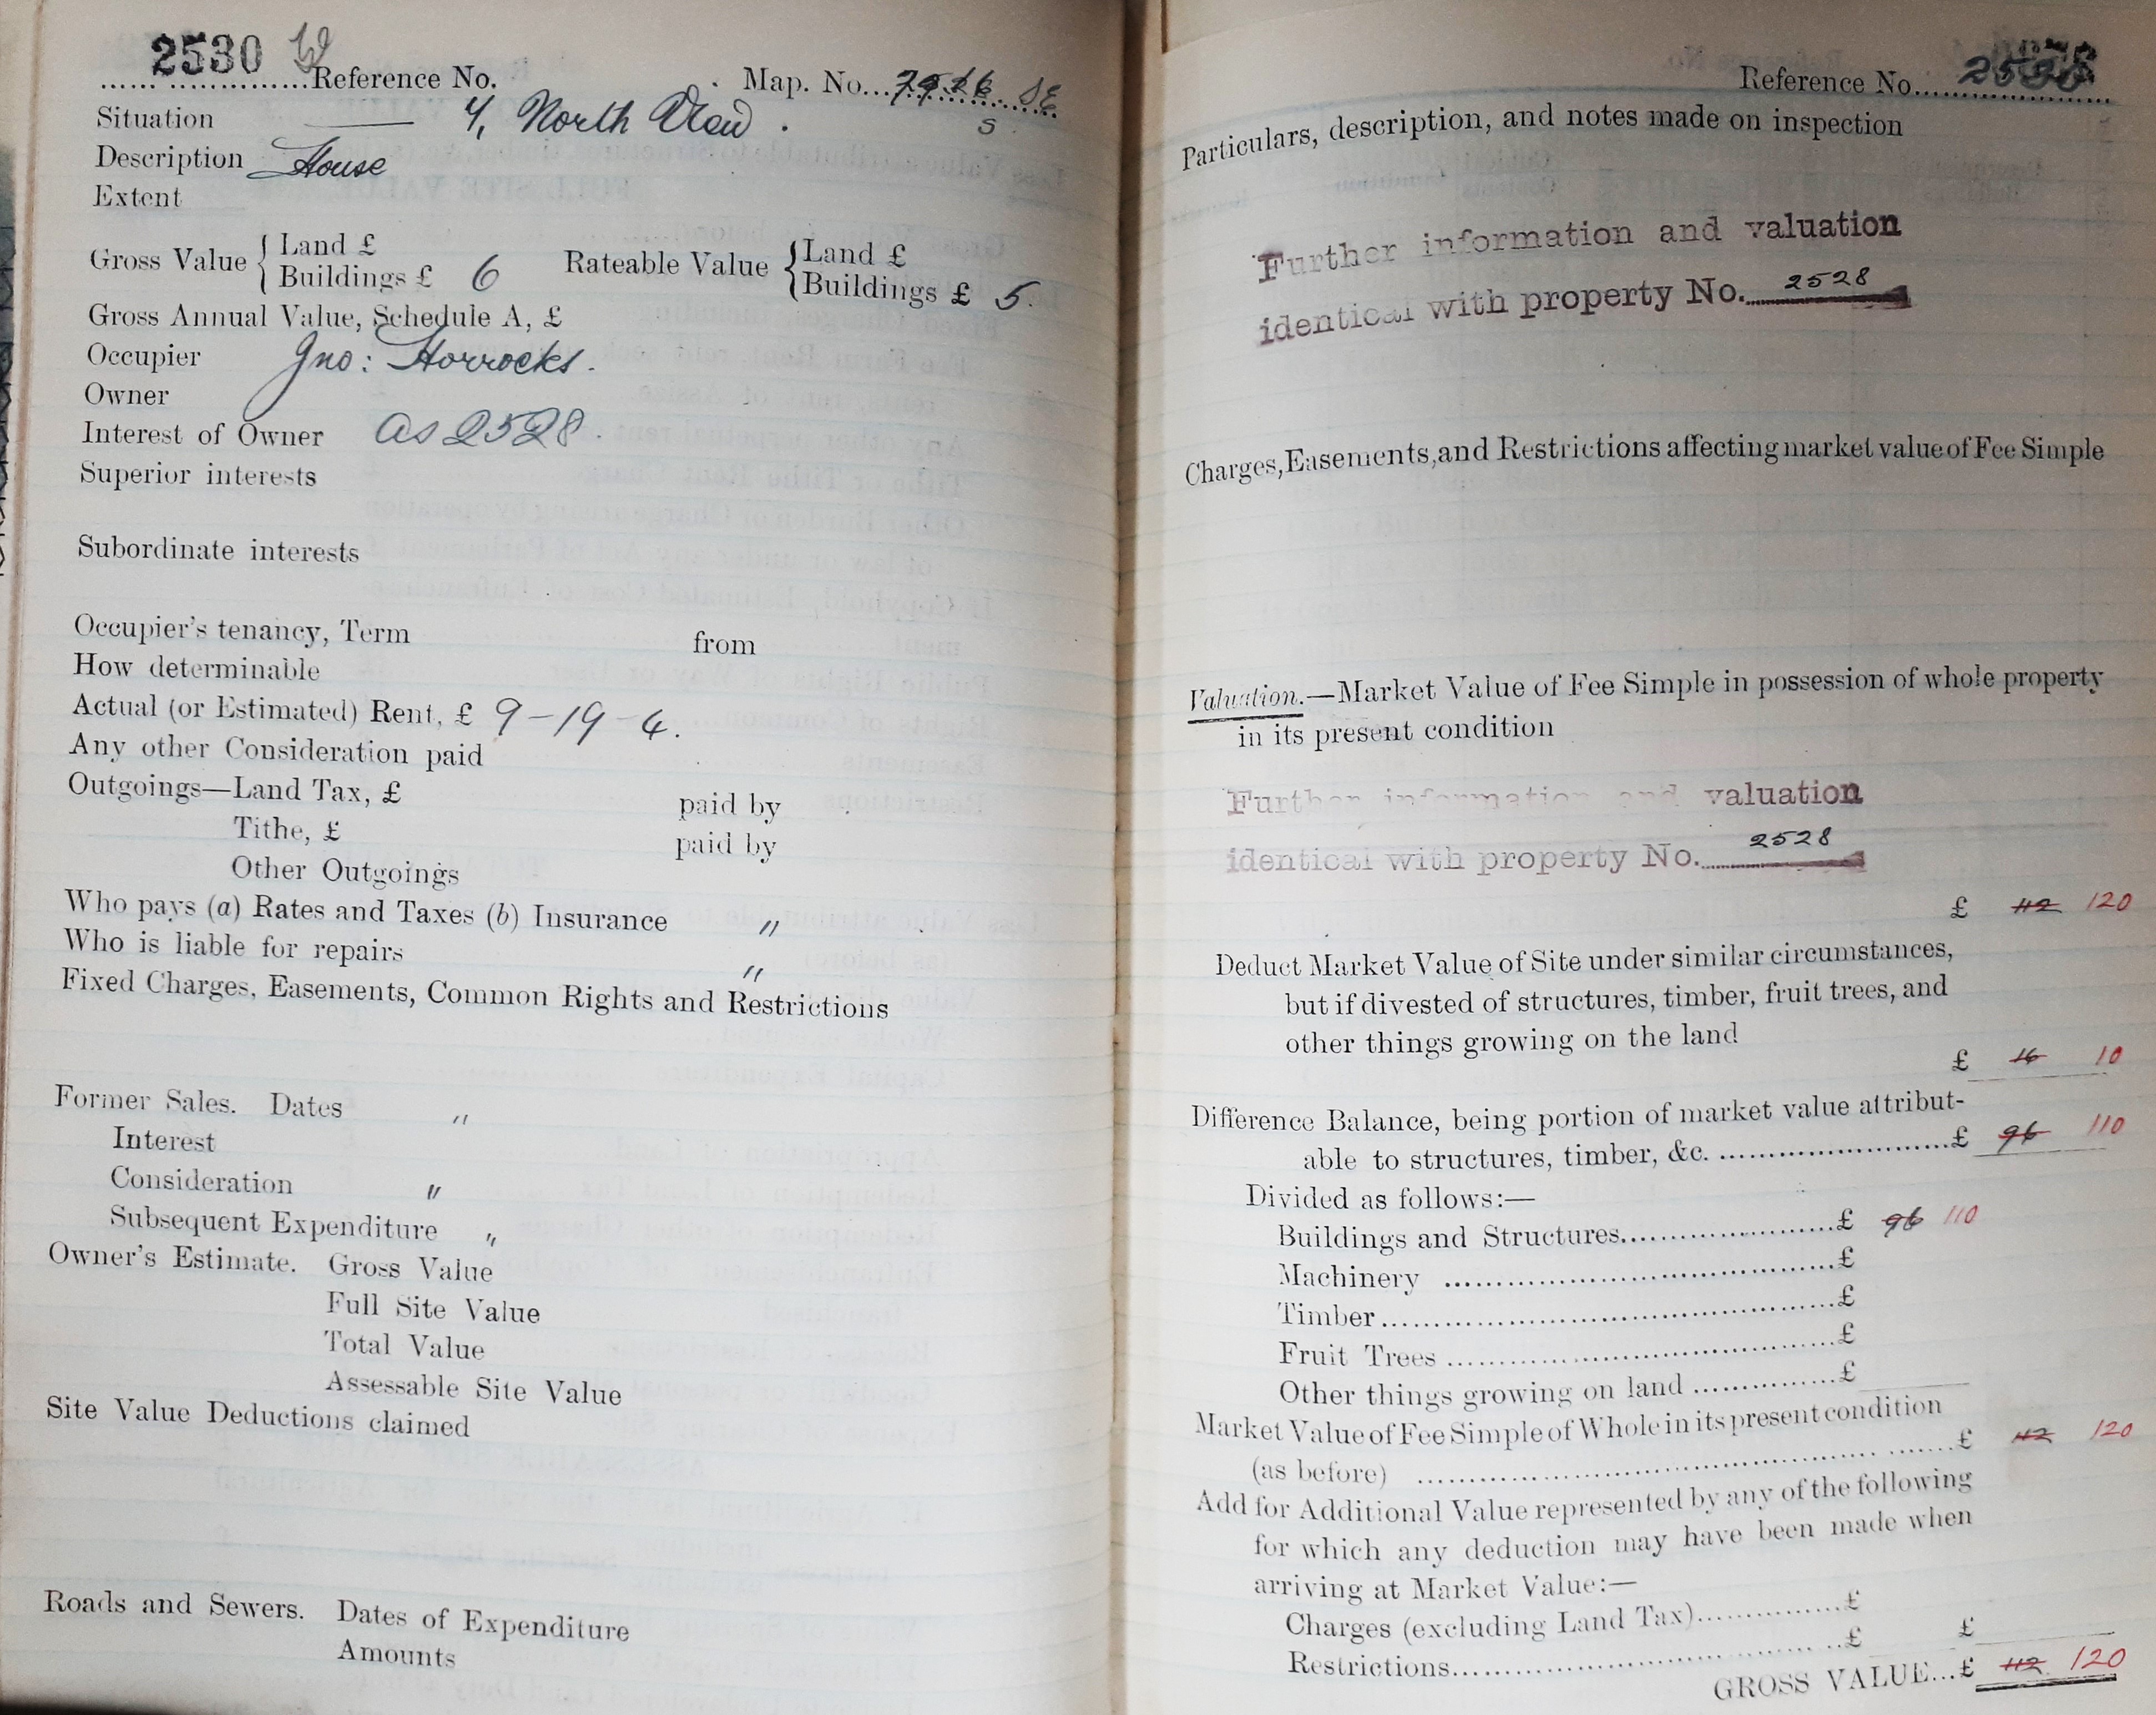 2530 W
Reference No. Map. No. SE
S
Situation 4, North View.
Description House
Extent
Gross Value { Land £
Buildings £ 6
Rateable Value { Land £
Buildings £ 5.
Gross Annual Value, Schedule A, £
Occupier Jno: Horrocks.
Owner
Interest of Owner as 2528.
Superior interests
Subordinate interests
Occupier's tenancy, Term from
How determinable
Actual (or Estimated) Rent, £ 9-19-4.
Any other Consideration paid
Outgoings—Land Tax, £ paid by
Tithe, £ paid by
Other Outgoings
Who pays (a) Rates and Taxes (b) Insurance "
Who is liable for repairs "
Fixed Charges, Easements, Common Rights and Restrictions
Former Sales. Dates "
Interest
Consideration "
Subsequent Expenditure "
Owner's Estimate. Gross Value
Full Site Value
Total Value
Assessable Site Value
Site Value Deductions claimed
Roads and Sewers. Dates of Expenditure
Amounts
Reference No.
Particulars, description, and notes made on inspection
Further information and valuation
identical with property No. 2528
Charges, Easements, and Restrictions affecting market value of Fee Simple
Valuation.—Market Value of Fee Simple in possession of whole property
in its present condition
Further information and valuation
identical with property No. 2528
£ 112 120
Deduct Market Value of Site under similar circumstances,
but if divested of structures, timber, fruit trees, and
other things growing on the land
£ 16 10
Difference Balance, being portion of market value attribut-
able to structures, timber, &c. £ 96 110
Divided as follows:—
Buildings and Structures £ 96 110
Machinery £
Timber £
Fruit Trees £
Other things growing on land £
Market Value of Fee Simple of Whole in its present condition
(as before) £ 112 120
Add for Additional Value represented by any of the following
for which any deduction may have been made when
arriving at Market Value:—
Charges (excluding Land Tax) £
Restrictions £ £
GROSS VALUE...£ 112 120